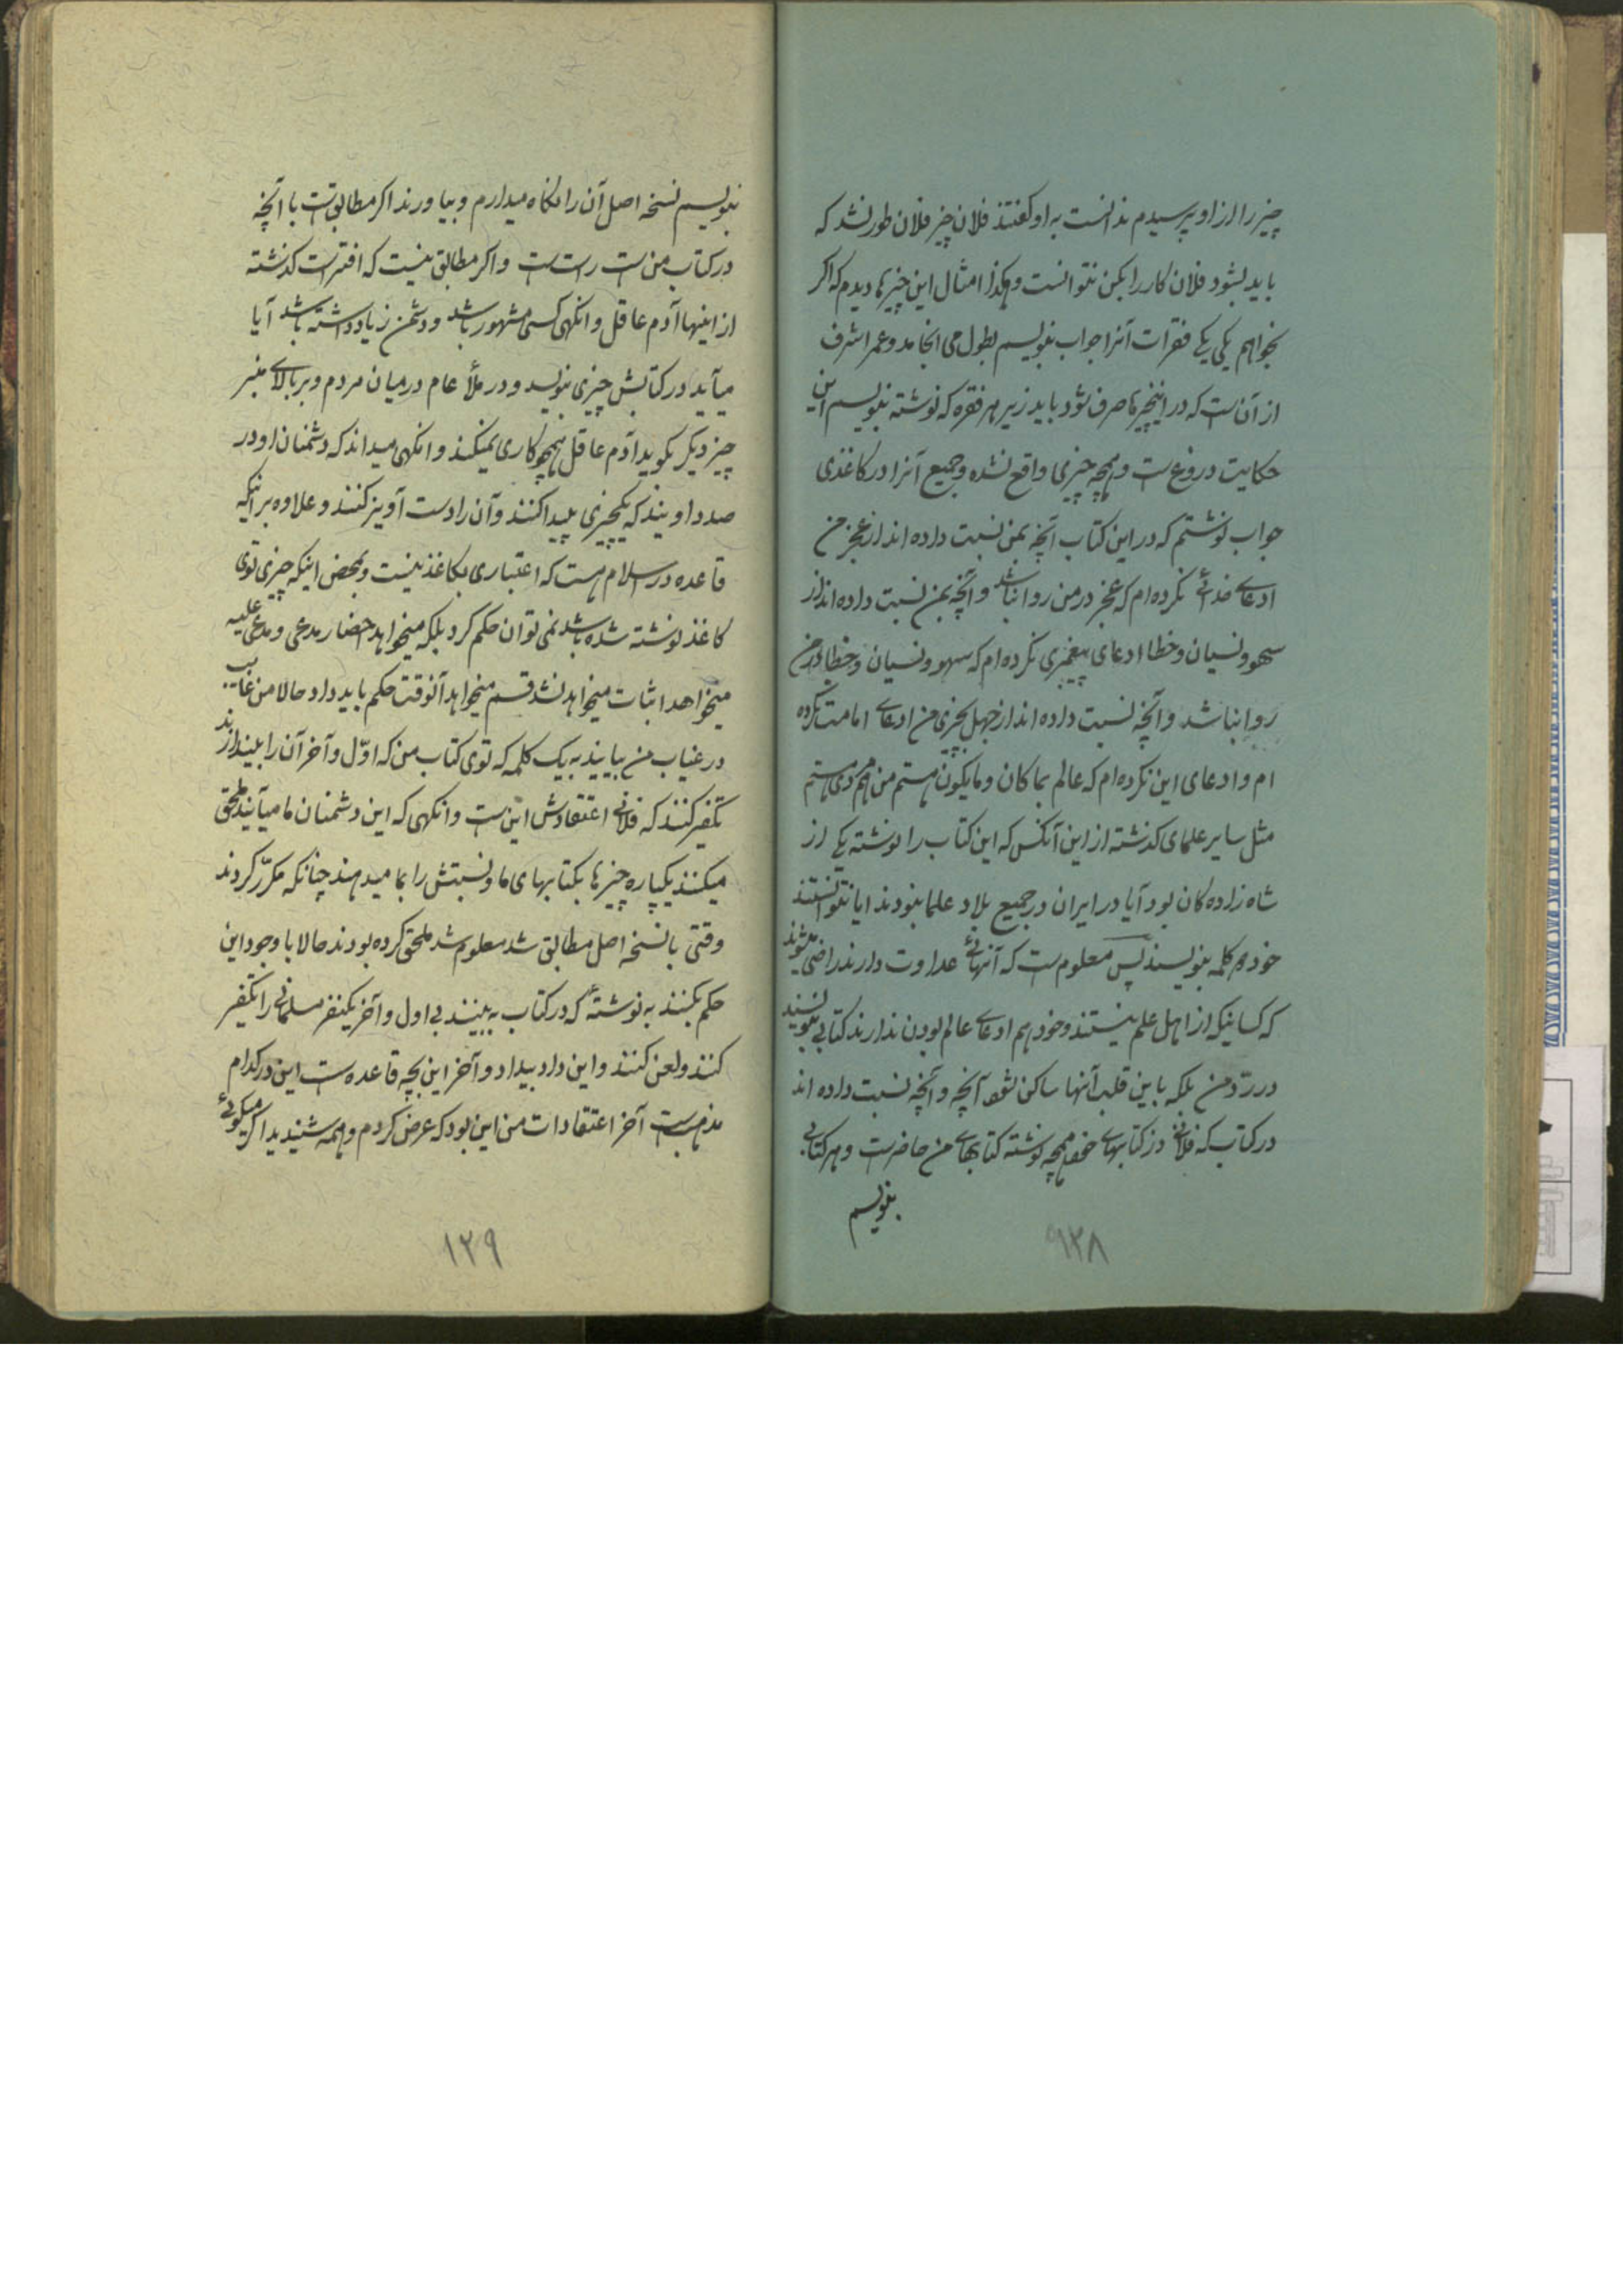 چیز را از او پرسیدم ندانست به او گفتند فلان چیز فلان طور نشد که
باید بشود فلان کار را بکن نتوانست و هکذا امثال این چیزها دیدم که اگر
بخواهم یکی یکی فقرات آنرا جواب بنویسم بطول می انجامد و عمر اشرف
از آن است که در اینچیزها صرف شود باید زیر هر فقره که نوشته بنویسم این
حکایت دروغ است و همچه چیزی واقع نشده و جمیع آنرا در کاغذی
جواب نوشتم که در این کتاب آنچه بمن نسبت داده اند از عجز من
ادعای خدائی نکرده ام که عجز در من روا نباشد و آنچه بمن نسبت داده اند از
سهو و نسیان و خطا ادعای پیغمبری نکرده ام که سهو و نسیان و خطا در من
روا نباشد و آنچه نسبت داده اند از جهل بچیزی من ادعای امامت نکرده
ام و ادعای این نکرده ام که عالم بما کان و ما یکون هستم من هم مردی هستم
مثل سایر علمای گذشته از این آنکس که این کتاب را نوشته یکی از
شاه زاده کان بود آیا در ایران در جمیع بلاد علما نبودند ایا نتوانستند
خود هم کلمه بنویسند پس معلوم است که آنهائی عداوت دارند راضی میشوند
که کسانیکه از اهل علم نیستند و خود هم ادعای عالم بودن ندارند کتابی بنویسند
در رد من بلکه باین قلب آنها ساکن شود آنچه و آنچه نسبت داده اند
در کتاب که فلانی در کتابهای خود همچه نوشته کتابهای من حاضر است و هر کتابی
بنویسم
۱۲۸
بنویسم نسخه اصل آن را نگاه میدارم و بیاورند اگر مطابق است با آنچه
در کتاب من است راست است و اگر مطابق نیست که افتراست گذشته
از اینها آدم عاقل وانگهی کسی مشهور باشد و دشمن زیاد داشته باشد آیا
میآید در کتابش چیزی بنویسد و در ملأ عام در میان مردم و بر بالای منبر
چیز دیگر بگوید آدم عاقل همچو کاری نمیکند وانگهی میداند که دشمنان او در
صدد اویند که یکچیزی پیدا کنند و آن را دست آویز کنند و علاوه بر اینکه
قاعده در اسلام هست که اعتباری بکاغذ نیست و بمحض اینکه چیزی توی
کاغذ نوشته شده باشد نمی توان حکم کرد بلکه میخواهد احضار مدعی و مدعی علیه
میخواهد اثبات میخواهد نشد قسم میخواهد آنوقت حکم باید داد حالا من غایب
در غیاب من بیایند به یک کلمه که توی کتاب من که اوّل و آخر آن را بیندازند
تکفیر کنند که فلانی اعتقادش این است وانگهی که این دشمنان ما میآیند ملحق
میکنند یکپاره چیزها بکتابهای ما و نسبتش را بما میدهند چنانکه مکرّر کردند
وقتی با نسخه اصل مطابق شد معلوم شد ملحق کرده بودند حالا با وجود این
حکم بکنند به نوشتهٔ که در کتاب به بینند بی اول و آخر یکنفر مسلمانی را تکفیر
کنند و لعن کنند و این داد بیداد و آخر این بچه قاعده است این در کدام
مذهب است آخر اعتقادات من این بود که عرض کردم و همه شنیدید اگر میگوئی
۱۲۹